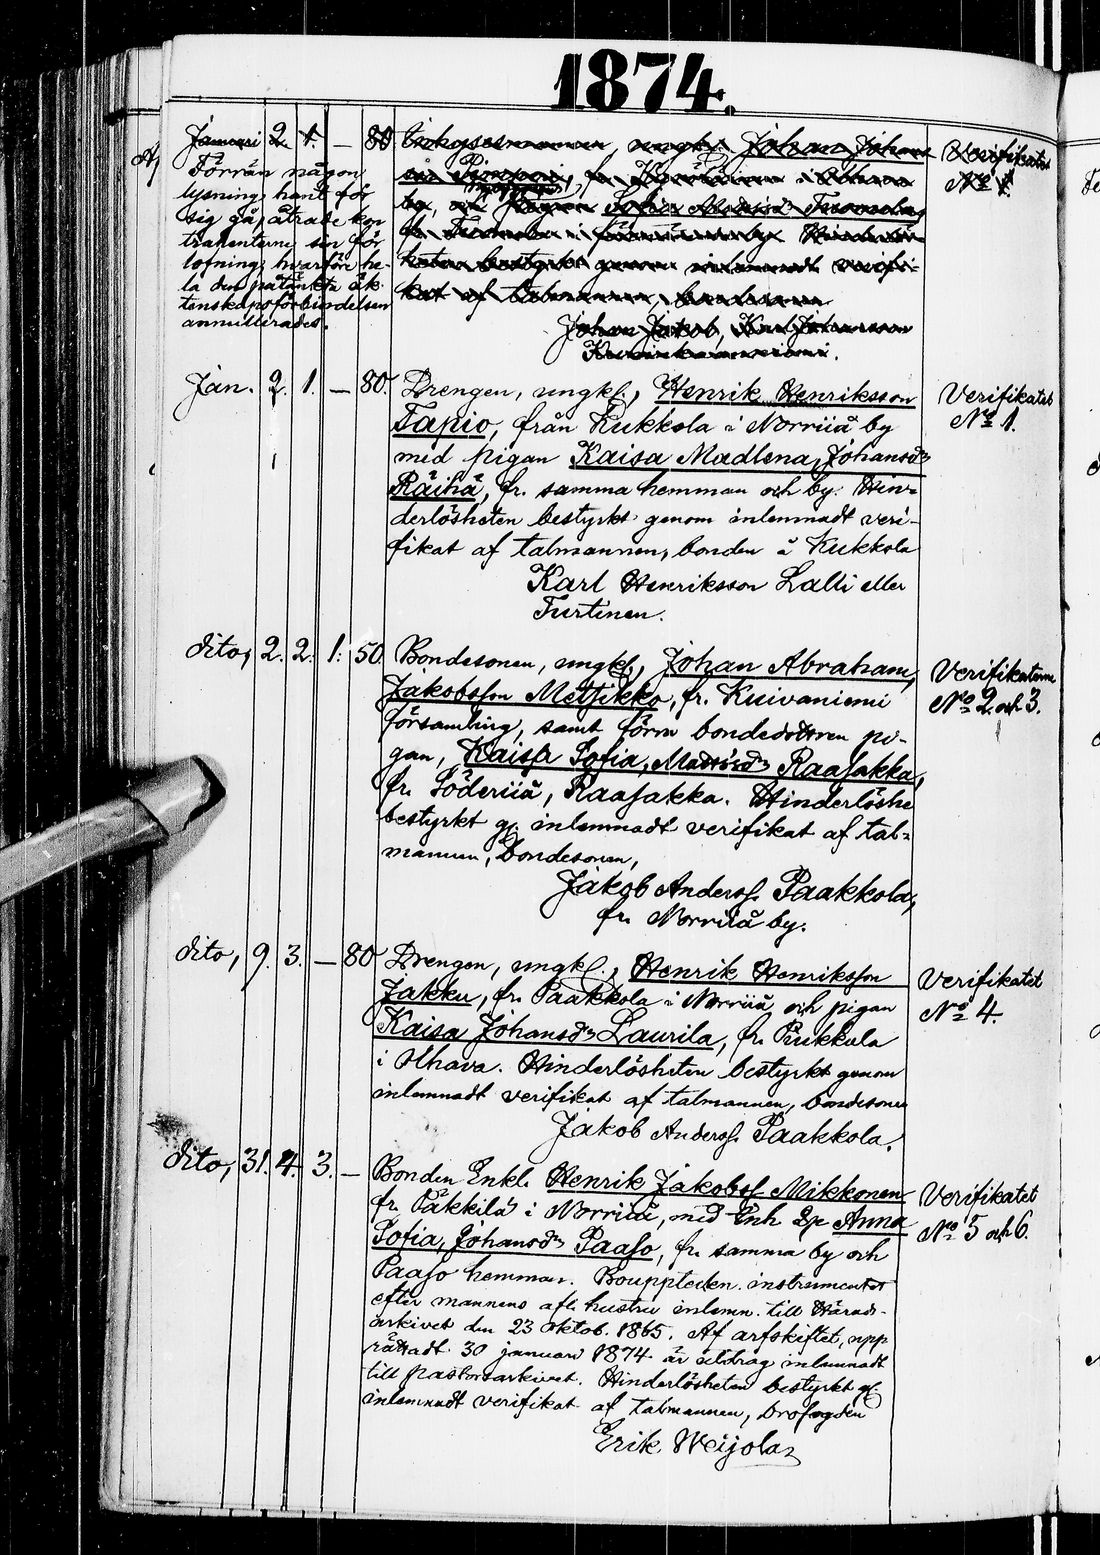 1874.
Januari 2. 1. — 80 ungk. Johan Johans-
Verifikatet
No 1.
Förrän någon
lysning hant för
sig gå, åtrade kon
trahenterne sin för
lofning, hvarföre he-
la den påtänkta äk-
tenskapsförbindelsen
annullerades.
by, Pigan Sofia
af talmannen, bonden
Johan Jakob, Karl Johansson
Jan. 2. 1. — 80. Drengen, ungk., Henrik Henriksson
Verifikatet
No 1.
Tapio, från Kukkola i Norriiå by
med pigan Kaisa Madlena, Johansdr
Räihä, fr. samma hemman och by. Hin-
derlösheten bestyrkt genom inlemnadt veri-
fikat af talmannen, bonden å Kukkola
Karl Henriksson Lalli eller
Turtinen.
dito, 2. 2. 1. 50 Bondesonen, ungk., Johan Abraham,
Verifikaterne
No 2. och 3.
Jakobsson Metsikko, fr. Kuivaniemi
församling, samt förra bondedottren pi-
gan, Kaisa Sofia, Mattsdr Raasakka,
fr. Söderiiå, Raasakka. Hinderlöshe
bestyrkt g. inlemnadt verifikat af tal-
mannen, bondesonen,
Jakob Anderss. Paakkola,
fr. Norriiå by.
dito, 9. 3. — 80 Drengen, ungk., Henrik Henriksson
Verifikatet
No 4.
Jakku, fr. Paakkola i Norriiå och pigan
Kaisa Johansdr Laurila, fr. Pukkula
i Uhava. Hinderlösheten bestyrkt genom
inlemnadt verifikat af talmannen, bondesonen
Jakob Anderss. Paakkola.
dito, 31. 4. 3. — Bonden Enkl. Henrik Jakobss Mikkonen
Verifikatet
No 5 och 6.
fr. Päkkilä i Norriiå, med Enk. Anna
Sofia, Johansdr Paaso, fr. samma by och
Paaso hemman. Bouppteckn. instrumentet
efter mannens afl. hustru inlemn. till Härads-
arkivet den 23 oktob. 1865. Af arfskiftet, upp
rättadt 30 januari 1874 är utdrag inlemnadt
till pastorsarkivet. Hinderlösheten bestyrkt g.
inlemnadt verifikat af talmannen, brofogden
Erik Weijola